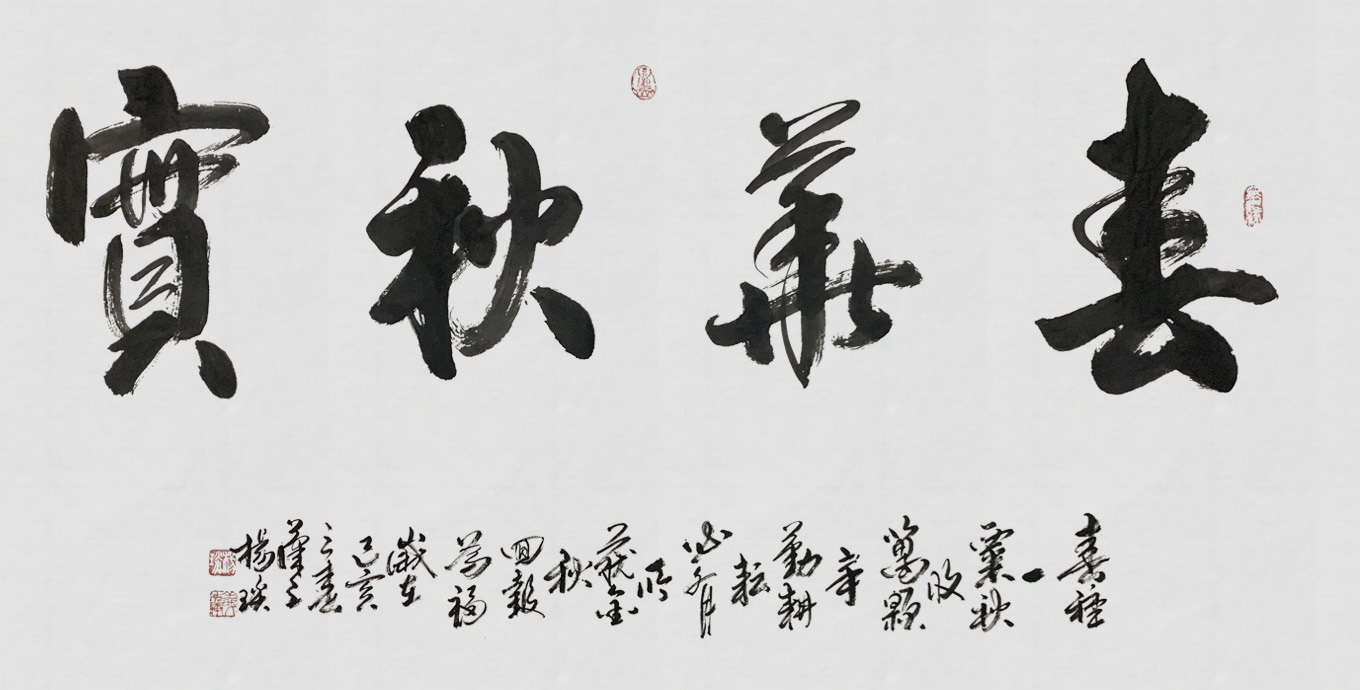 春華秋實
春種
一
粟秋
收
萬顆
辛
勤耕
耘
必有
所
獲金
秋
回報
為福
歲在
己亥
之春
楊